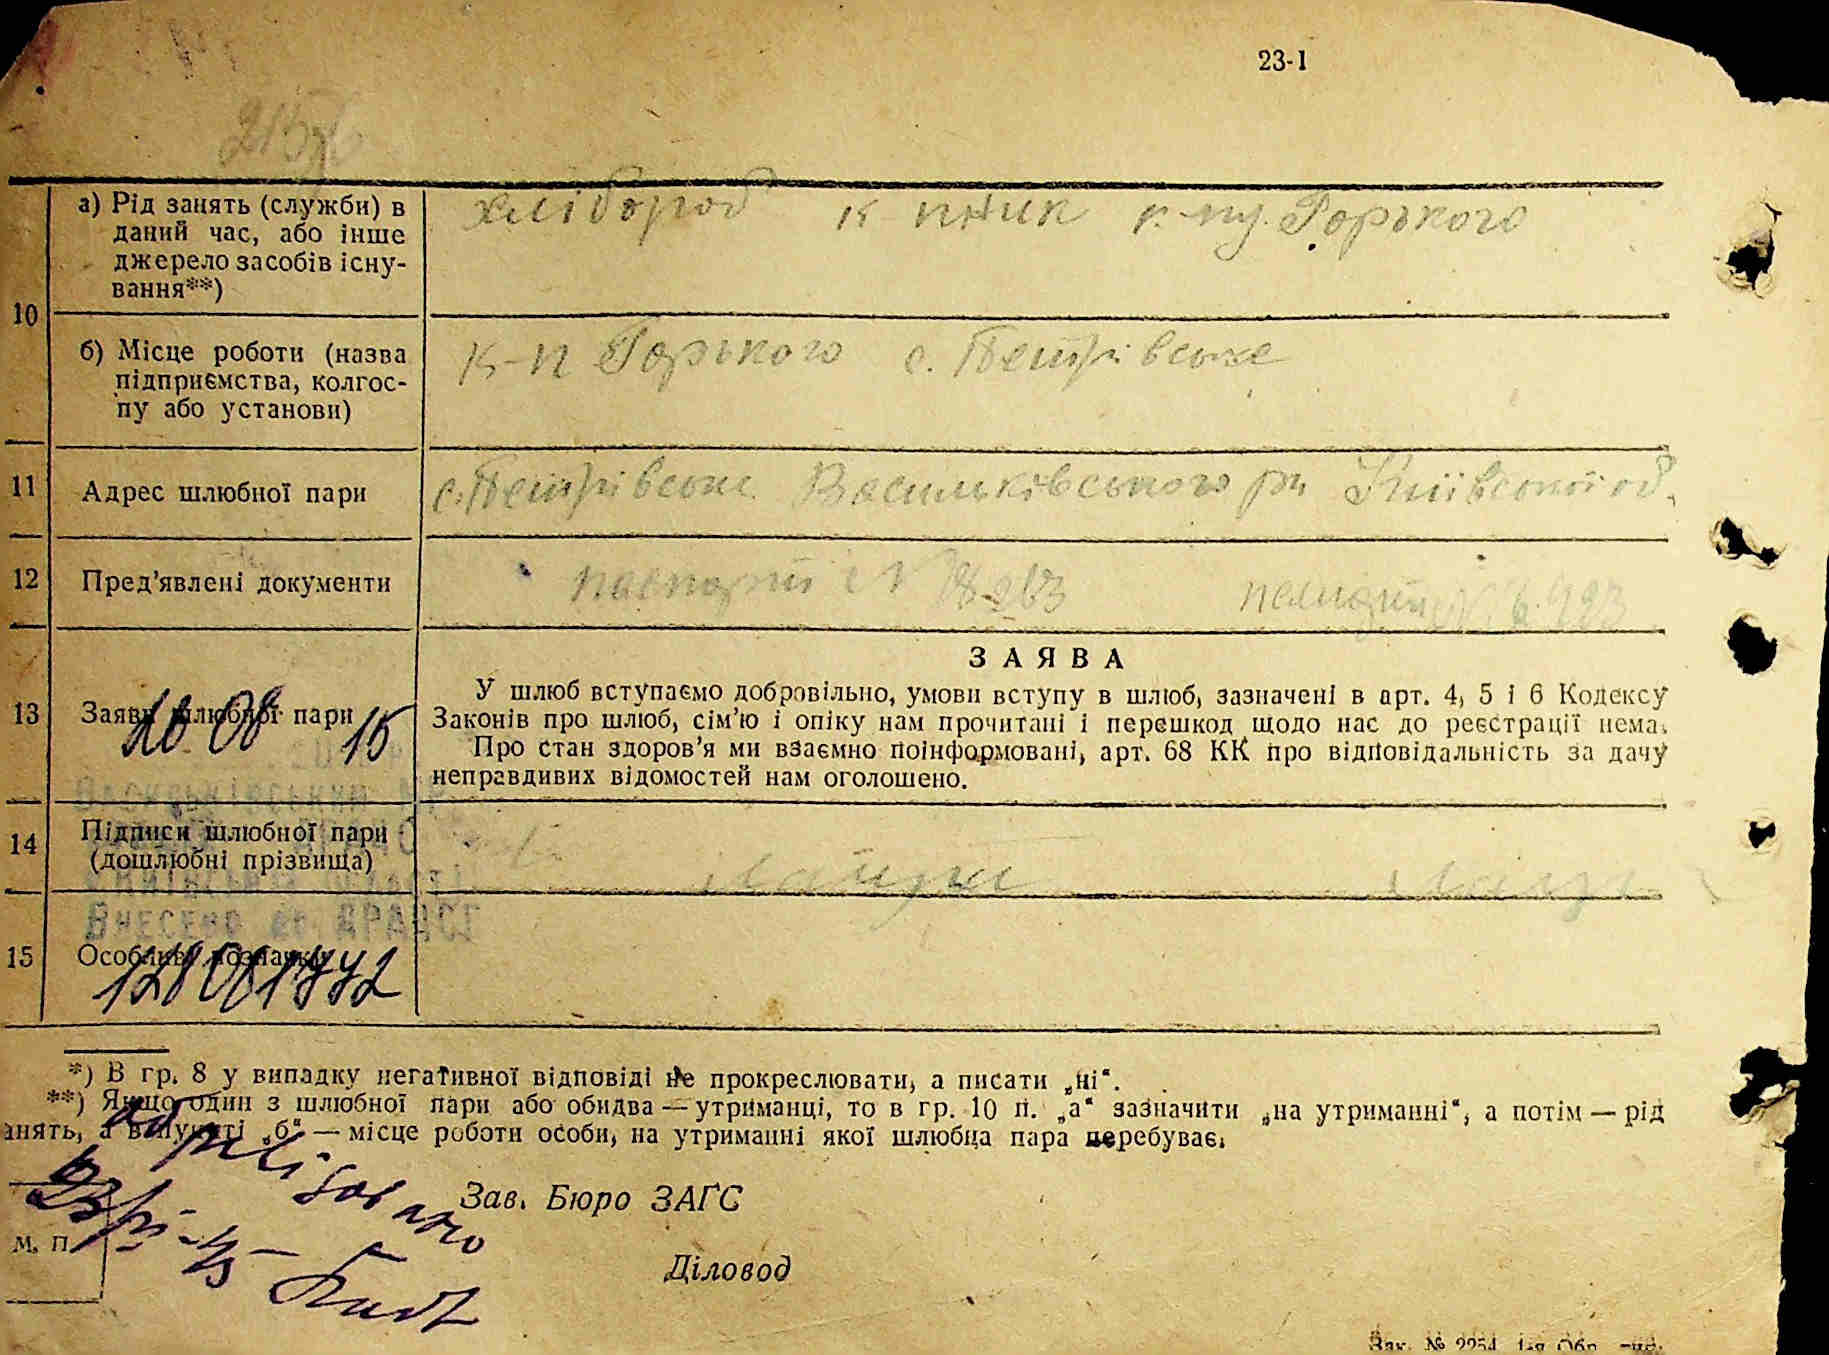 23-1
10
а) Рід занять (служби) в
даний час, або інше
джерело засобів існу-
вання**)
хлібороб к пник к-пу. Горького
б) Місце роботи (назва
підприємства, колгос-
пу або установи)
к-п Горького с. Петрівське
11
Адрес шлюбної пари
с. Петрівське Васильківського рн Київської об.
12
Пред'явлені документи
паспорт
13
Заява шлюбної пари
15
ЗАЯВА
У шлюб вступаємо добровільно, умови вступу в шлюб, зазначені в арт. 4, 5 і 6 Кодексу
Законів про шлюб, сім'ю і опіку нам прочитані і перешкод щодо нас до реєстрації нема.
Про стан здоров'я ми взаємно поінформовані, арт. 68 КК про відповідальність за дачу
неправдивих відомостей нам оголошено.
Васильківський
14
Підписи шлюбної пари
(дошлюбні прізвища)
Внесено до ДРАЦСГ
15
Особливі позначки
*) В гр. 8 у випадку негативної відповіді не прокреслювати, а писати „ні“.
**) Якщо один з шлюбної пари або обидва — утриманці, то в гр. 10 п. „а“ зазначити „на утриманні“, а потім — рід
анять, а в пункті „б“ — місце роботи особи, на утриманні якої шлюбна пара перебуває.
Зав. Бюро ЗАГС
М. П.
Діловод
Зак. № 2254